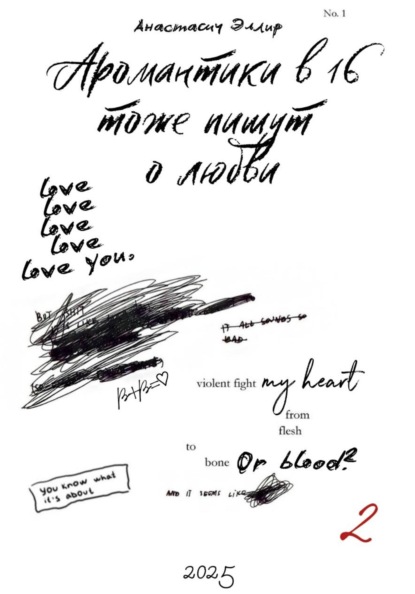 No. 1
Анастасич Эллир
Аромантики в 16
тоже пишут
о любви
Love
Love
Love
Love
Love you.
BUT SHIT
IT ALL SOUNDS SO
BAD
B+B=♡
violent fight my heart
from
flesh
to
bone Or blood?
you know what
it's about
AND IT SEEMS LIKE
2
2025